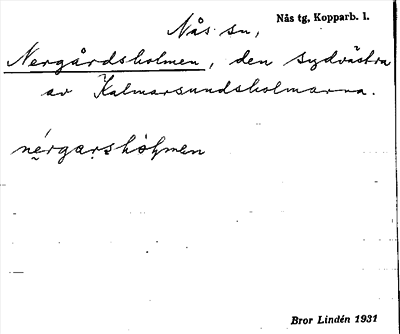 Nås tg, Kopparb. l.
Nås sn,
Nergårdsholmen, den sydvästra
av Kalmarsundsholmarna.
nérgarshòḷmen
Bror Lindén 1931